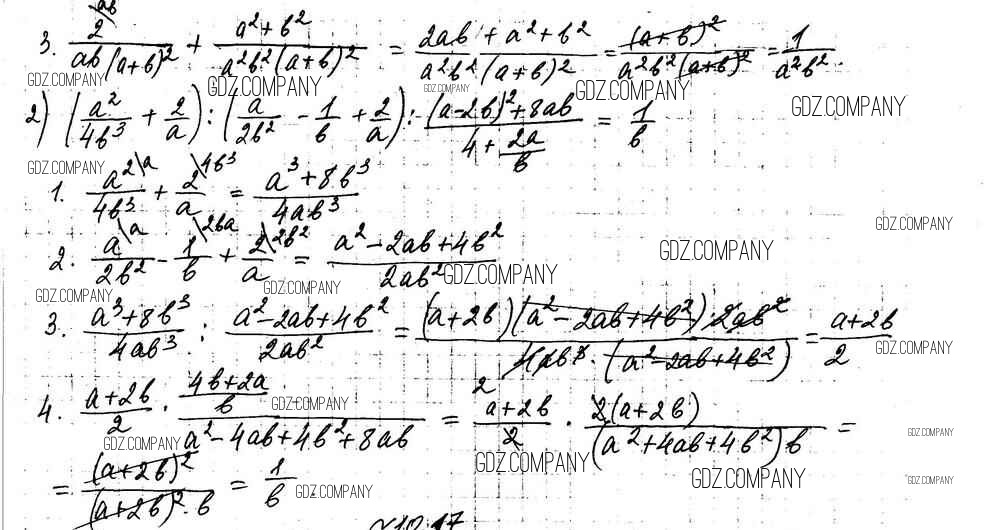 3. 2\ab / ab(a+b)² + (a²+b²) / a²b²(a+b)² = (2ab+a²+b²) / a²b²(a+b)² = (a+b)² / a²b²(a+b)² = 1 / a²b².
GDZ.COMPANY GDZ.COMPANY GDZ.COMPANY GDZ.COMPANY GDZ.COMPANY
2) (a²/4b³ + 2/a) : (a/2b² - 1/b + 2/a) : ((a-2b)²+8ab) / (4 + 2a/b) = 1/b
GDZ.COMPANY
1. a²\a / 4b³ + 2\4b³ / a = (a³+8b³) / 4ab³
GDZ.COMPANY GDZ.COMPANY
2. a\a / 2b² - 1\2ba / b + 2\2b² / a = (a²-2ab+4b²) / 2ab²
GDZ.COMPANY GDZ.COMPANY GDZ.COMPANY
3. (a³+8b³) / 4ab³ : (a²-2ab+4b²) / 2ab² = (a+2b)(a²-2ab+4b²) 2ab² / 4ab³ · (a²-2ab+4b²) = (a+2b) / 2
GDZ.COMPANY
4. (a+2b) / 2 · ((4b+2a) / b) / (a²-4ab+4b²+8ab) = (a+2b) / 2 · 2(a+2b) / (a²+4ab+4b²)b =
GDZ.COMPANY GDZ.COMPANY GDZ.COMPANY GDZ.COMPANY
= (a+2b)² / (a+2b)²·b = 1/b.
GDZ.COMPANY GDZ.COMPANY GDZ.COMPANY